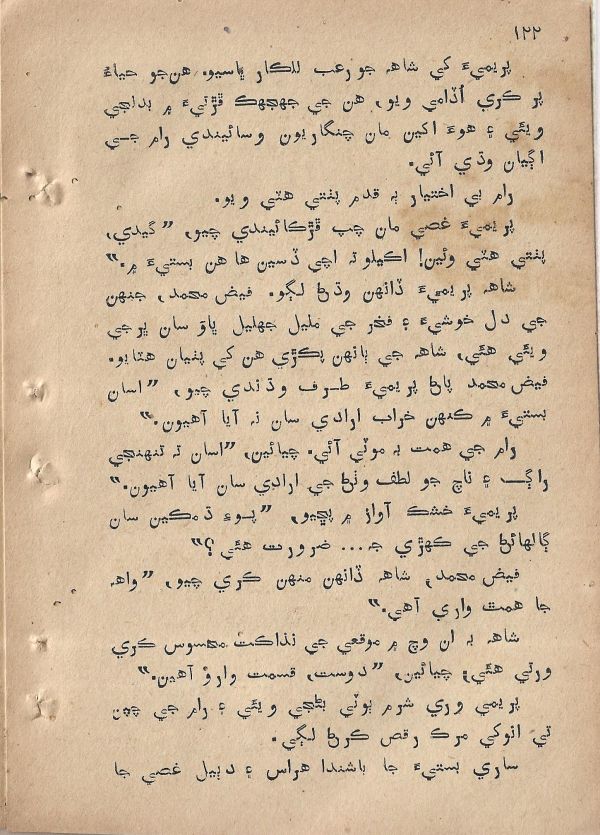 ۱۲۲
پريميءَ کي شاهہ جو رعب للڪار ڀاسيو. هن جو حياءُ
پر ڪري اُڏامي ويو، هن جي جهجهڪ ڦڙتيءَ ۾ بدلجي
ويئي ۽ هوءَ اکين مان چنگاريون وسائيندي رام جي
اڳيان وڌي آئي.
رام بي اختيار ٻہ قدم پٺتي هٽي ويو.
پريميءَ غصي مان چپ ڦڙڪائيندي چيو، ”گيدي،
پٺتي هٽي وئين! اڪيلو تہ اچي ڏسين ها هن بستيءَ ۾.“
شاهہ پريميءَ ڏانهن وڌڻ لڳو. فيض محمد، جنهن
جي دل خوشيءَ ۽ فخر جي مليل جهليل ڀاوَ سان ڀرجي
ويئي هئي، شاهہ جي ٻانهن پڪڙي هن کي پٺيان هٽايو.
فيض محمد پاڻ پريميءَ طرف وڌندي چيو، ”اسان
بستيءَ ۾ ڪنهن خراب ارادي سان نہ آيا آهيون.“
رام جي همت بہ موٽي آئي. چيائين، ”اسان تہ تنهنجي
راڳ ۽ ناچ جو لطف وٺڻ جي ارادي سان آيا آهيون.“
پريميءَ خشڪ آواز ۾ پڇيو، ”پوءِ ڌمڪين سان
ڳالهائڻ جي ڪهڙي جـ... ضرورت هئي؟“
فيض محمد، شاهہ ڏانهن منهن ڪري چيو، ”واهہ
جا همت واري آهي.“
شاهہ بہ ان وچ ۾ موقعي جي نذاڪت محسوس ڪري
ورتي هئي، چيائين، ”دوست، قسمت وارو آهين.“
پريمي وري شرم ٻوٽي بڻجي ويئي ۽ رام جي چپن
تي انوکي مرڪ رقص ڪرڻ لڳي.
ساري بستيءَ جا باشندا هراس ۽ دٻيل غصي جا